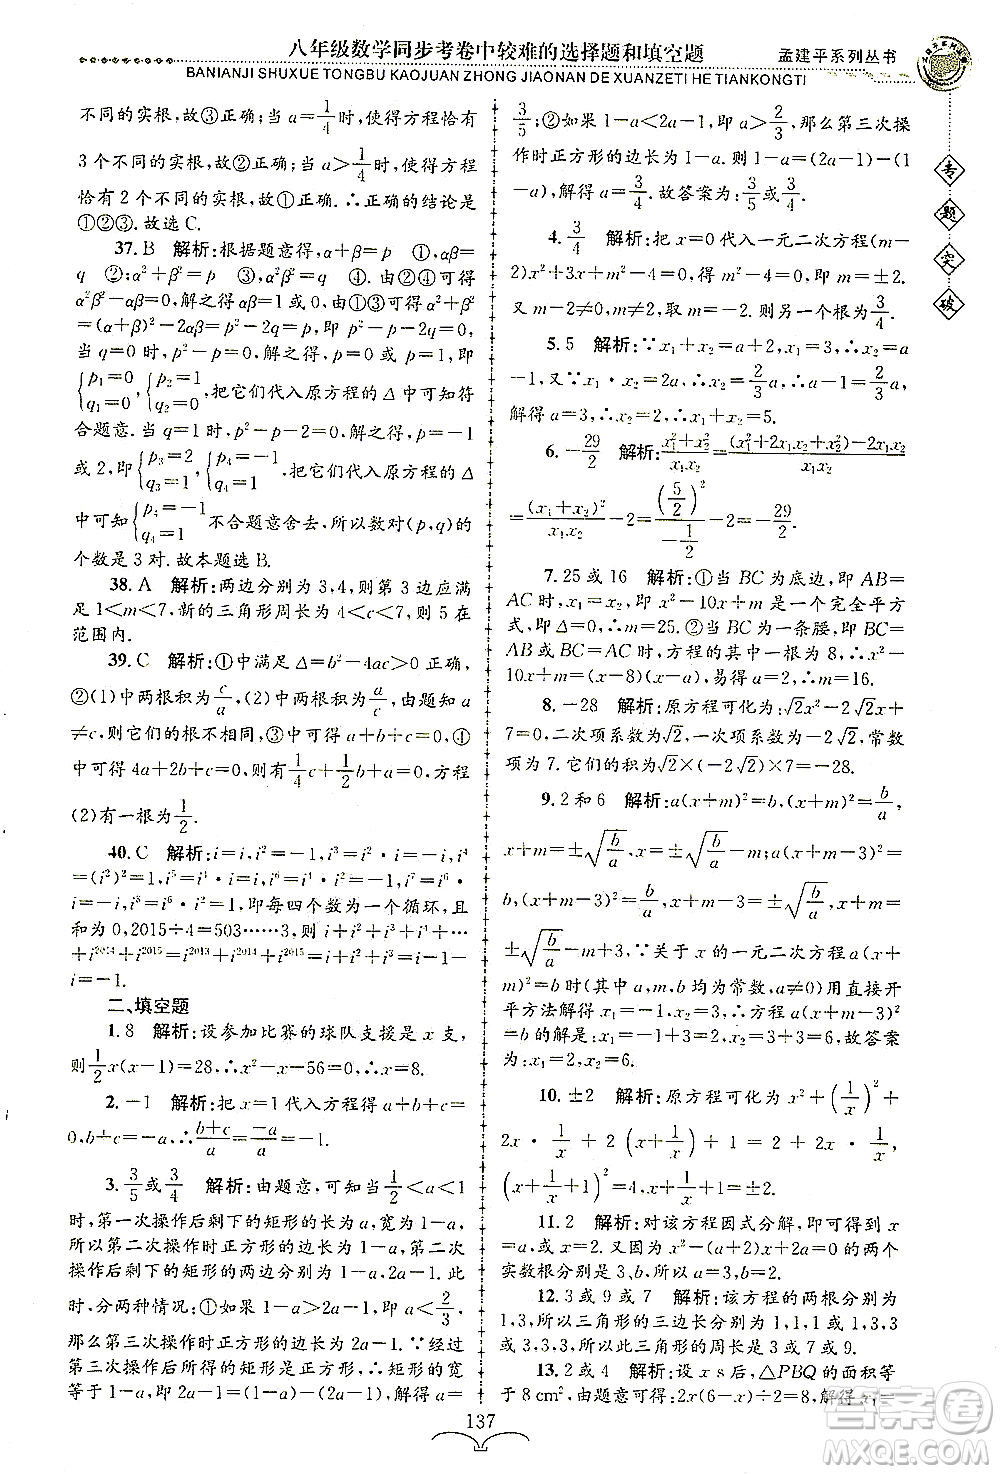 八年级数学同步考卷中较难的选择题和填空题
孟建平系列丛书
BANIANJI SHUXUE TONGBU KAOJUAN ZHONG JIAONAN DE XUANZETI HE TIANKONGTI
专题突破
不同的实根,故③正确;当a=1/4时,使得方程恰有
3个不同的实根,故②正确;当a>1/4时,使得方程
恰有2个不同的实根,故①正确.∴正确的结论是
①②③.故选C.
37.B 解析:根据题意得,α+β=p ①,αβ=
q ②;α²+β²=p ③,α²β²=q ④.由②④可得
α²β²-αβ=0,解之得αβ=1或0 由①③可得α²+β²=
(α+β)²-2αβ=p²-2q=p,即p²-p-2q=0,
当q=0时,p²-p=0,解之得,p=0或p=1,即
{p₁=0 q₁=0,{p₂=1 q₂=0,把它们代入原方程的Δ中可知符
合题意.当q=1时,p²-p-2=0,解之得,p=-1
或2,即{p₃=2 q₃=1,{p₄=-1 q₄=1.把它们代入原方程的Δ
中可知{p₃=-1 q₄=1不合题意舍去,所以数对(p,q)的
个数是3对.故本题选B.
38.A 解析:两边分别为3,4,则第3边应满
足1<m<7,新的三角形周长为4<c<7,则5在
范围内.
39.C 解析:①中满足Δ=b²-4ac>0正确,
②(1)中两根积为c/a,(2)中两根积为a/c,由题知a
≠c,因此它们的根不相同,③中可得a=c,④①
中可得4a+2b+c=0,可得1/4c+1/2b+a=0,方程
(2)有一根为1/2.
40.C 解析:i=i,i²=-1,i³=i²·i=-i,i⁴
=(i²)²=1,i⁵=i⁴·i=i,i⁶=i⁵·i=-1,i⁷=i⁶·i
=-i,i⁸=i⁶·i=1,即每四个数为一个循环,且
和为0,2015÷4=503……3,则i+i²+i³+i⁴+…
+i²⁰¹⁴+i²⁰¹⁵=i²⁰¹³+i²⁰¹⁴+i²⁰¹⁵=i+i²+i³=i-1-i
=-1.
二、填空题
1.8 解析:设参加比赛的球队支援是x支,
则1/2x(x-1)=28,∴x²-x-56=0,∴x=8.
2.-1 解析:把x=1代入方程得a+b+c=
0,b+c=-a,∴(b+c)/a=-a/a=-1.
3.3/5或3/4 解析:由题意,可知当1/2<a<1
时,第一次操作后剩下的矩形的长为a,宽为1-a,
所以第二次操作时正方形的边长为1-a,第二次操
作后剩下的矩形的两边分别为1-a,2a-1.此
时,分两种情况:①如果1-a>2a-1,即a<2/3,
那么第三次操作时正方形的边长为2a-1.∵经过
第三次操作后所得的矩形是正方形,∴矩形的宽
等于1-a,即2a-1=(1-a)-(2a-1),解得a=
3/5;②如果1-a<2a-1,即a>2/3,那么第三次操
作时正方形的边长为1-a.则1-a=(2a-1)-(1
-a),解得a=3/4.故答案为:3/5或3/4.
4.3/4 解析:把x=0代入一元二次方程(m-
2)x²+3x+m²-4=0,得m²-4=0,即m=±2.
又m-2≠0,m≠2,取m=-2.则所求的值为3/4.
5.5 解析:∵x₁+x₂=a+2,即3+x₂=a
+2,又∵x₁·x₂=2a,即3·x₂=2a,x₂=2/3a,
解得a=3,∴x₂=2,∴x₁+x₂=5.
6.-29/2 解析:(x₁²+x₂²)/x₁x₂=((x₁²+2x₁x₂+x₂²)-2x₁x₂)/x₁x₂
=(x₁+x₂)²/x₁x₂-2=(5/2)²/(-1/2)-2=-29/2.
7.25或16 解析:①当BC为底边,即AB=
AC时,x₁=x₂,即x²-10x+m为一个完全平方
式,即Δ=0,∴m=25.②当BC为一条腰,即BC=
AB或BC=AC,方程的其中一根为8,∴x²-
10x+m=(x-8)(x-a),易得a=2,∴m=16.
8.-28 解析:原方程可化为:√2x²-2√2x+
7=0,二次项系数为√2,一次项系数为-2√2,常数
项为7.它们的积为√2×(-2√2)×7=-28.
9.2和6 解析:a(x+m)²=b,(x+m)²=b/a,
x+m=±√(b/a),x=±√(b/a)-m.又∵a(x+m-3)²
=b,(x+m-3)²=b/a,x+m-3=±√(b/a),x=
±√(b/a)-m+3,∵关于x的一元二次方程a(x+
m)²=b(其中a,m,b均为常数,且a≠0)可用直接开
平方法解得x₁=-1,x₂=3,∴方程a(x+m-3)²
=b的解是:x₁=-1+3=2,x₂=3+3=6.故答案
为:x₁=2,x₂=6.
10.±2 解析:原方程可化为x²+(1/x)²+
2x·1/x+2(x+1/x)=8,即(x+1/x)²
(x+1/x)
11.2 解析:对该方程因式分解,可得x=
-2,x=a,由题意可知x=-2,x=a=0的两个
实数根分别是-2,3,所以a=3,所以a-1=2.
12.3或9或7 解析:该方程的两根分别为1
和3,所以三角形的三边可能为1,1,1或1,3,3
或3,3,3.所以此三角形的周长是3或7或9.
13.2或4 解析:设x s后,△PBQ的面积等
于8 cm²,由题意可得:2x(6-x)÷2=8,解得x₁=
137
答案圈
MXQE.COM